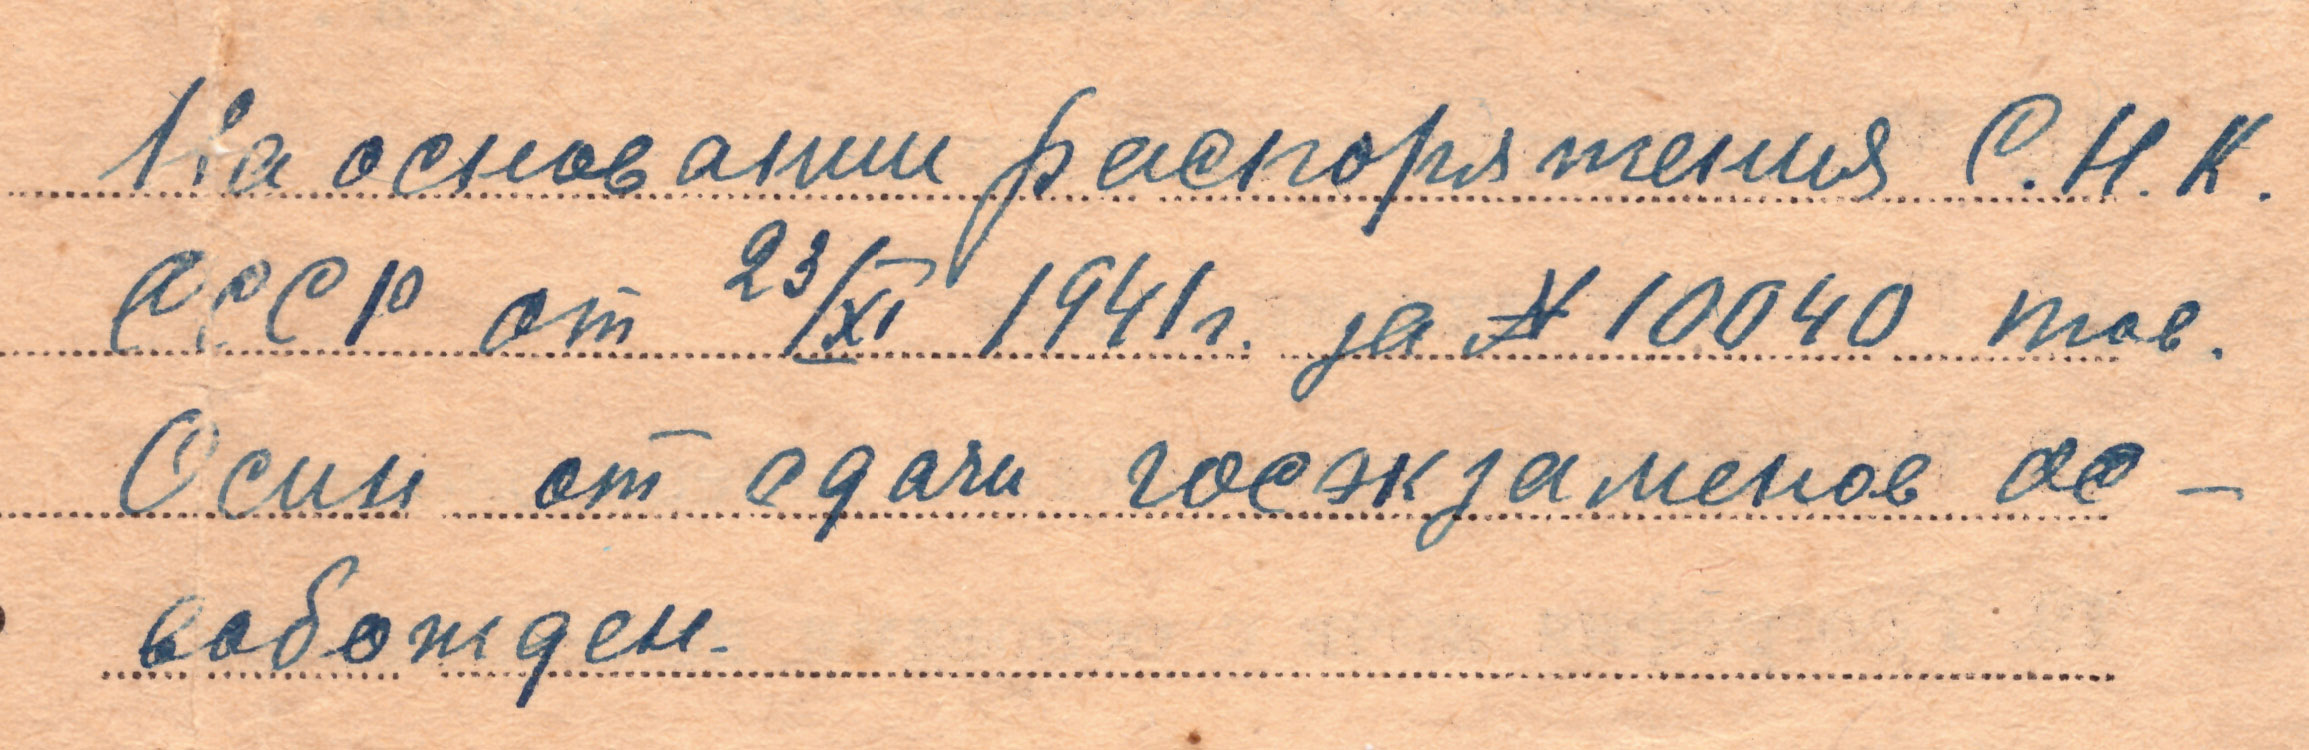 На основании распоряжения С.Н.К.
СССР от 23/XI 1941г. за № 10040 тов.
Осин от сдачи госэкзаменов ос-
вобожден.